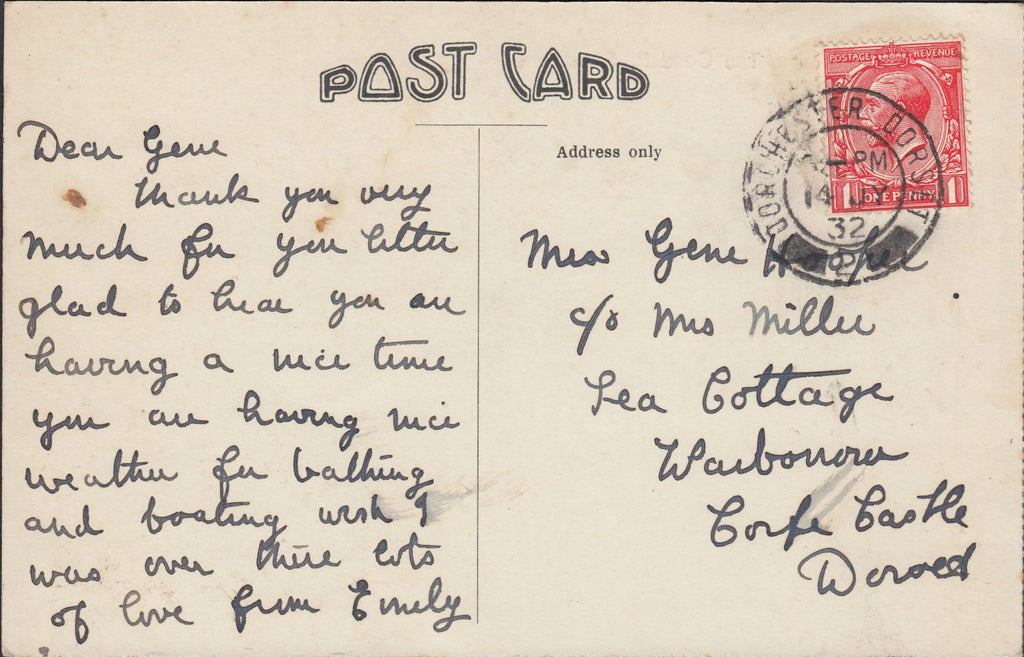 POST CARD
Address only
Dear Gene
Thank you very
much for you letter
glad to hear you are
having a nice time
you are having nice
weather for bathing
and boating wish I
was over there lots
of love from Emely
POSTAGE REVENUE
1 ONE PENNY 1
DORCHESTER DORSET
PM
14 JY
32
2
Miss Gene
c/o Mrs Miller
Sea Cottage
Warbonrow
Corfe Castle
Dorset